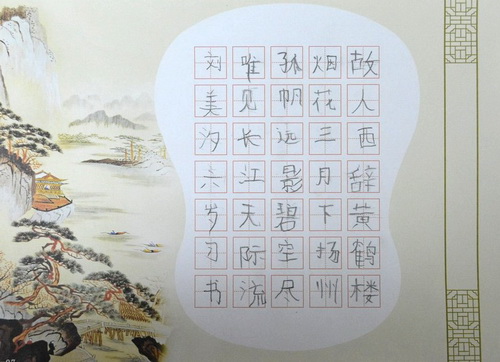 故人西辞黄鹤楼
烟花三月下扬州
孤帆远影碧空尽
唯见长江天际流
刘美汐六岁习书